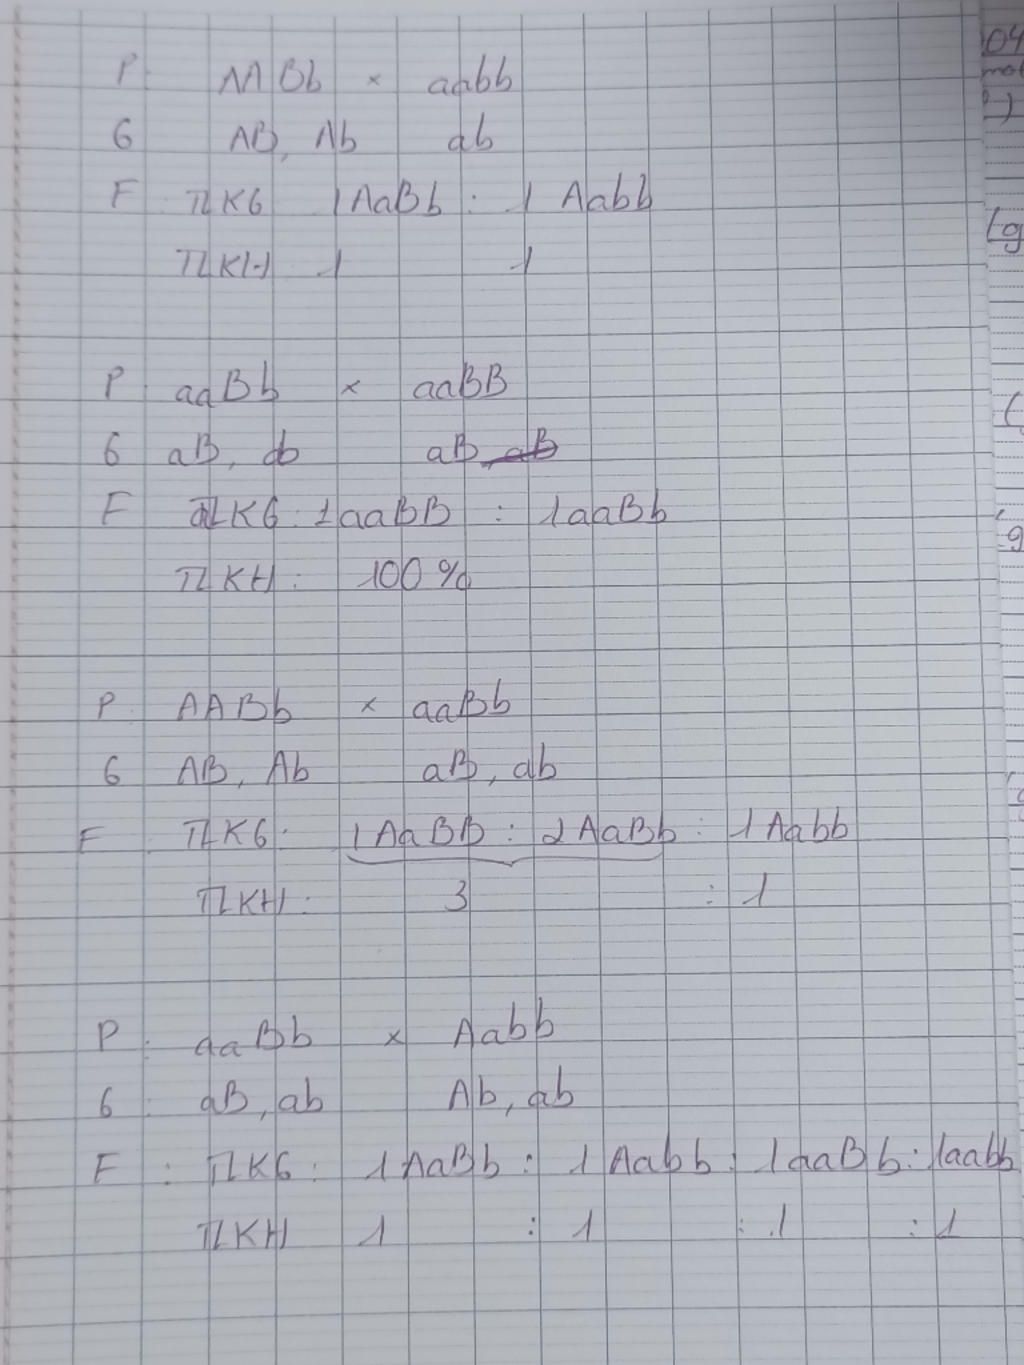 P: AABb × aabb
G AB, Ab ab
F TLKG 1AaBb : 1 Aabb
TLKH 1 1
P aaBb × aaBB
G aB, ab aB
F TLKG: 1aaBB : 1aaBb
TLKH: 100%
P AABb × aaBb
G AB, Ab aB, ab
F : TLKG: 1AaBB : 2AaBb : 1Aabb
TLKH: 3 : 1
P : aaBb × Aabb
G : aB, ab Ab, ab
F : TLKG: 1AaBb : 1Aabb : 1aaBb : 1aabb
TLKH 1 : 1 : 1 : 1
04